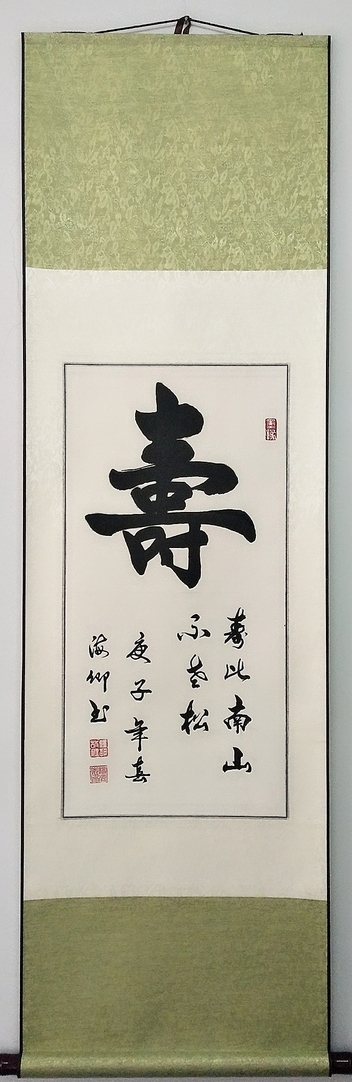 壽
壽比南山
不老松
庚子年春
海仰书